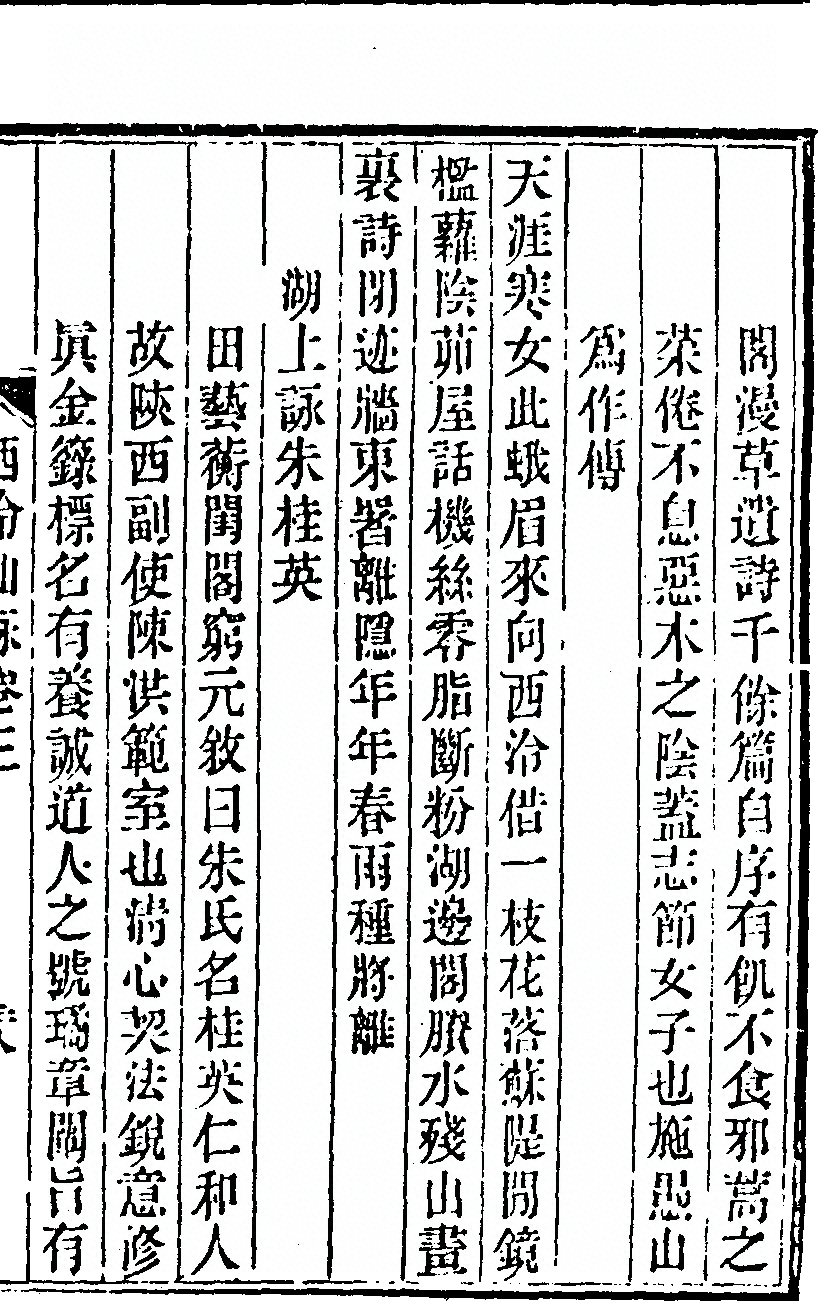 閣漫草遺詩千餘篇自序有飢不食邪蒿之
菜倦不息惡木之陰蓋志節女子也施愚山
爲作傳
天涯寒女此蛾眉來向西泠借一枝花落蘇隄開鏡
檻蘿陰茆屋話機絲零脂斷粉湖邊閣賸水殘山畫
裏詩閉迹牆東署離隱年年春雨種將離
湖上詠朱桂英
田藝蘅閨閣窮元敘曰朱氏名桂英仁和人
故陝西副使陳洪範室也清心契法銳意修
眞金籙標名有養誠道人之號璚章闡旨有
西泠仙詠卷三